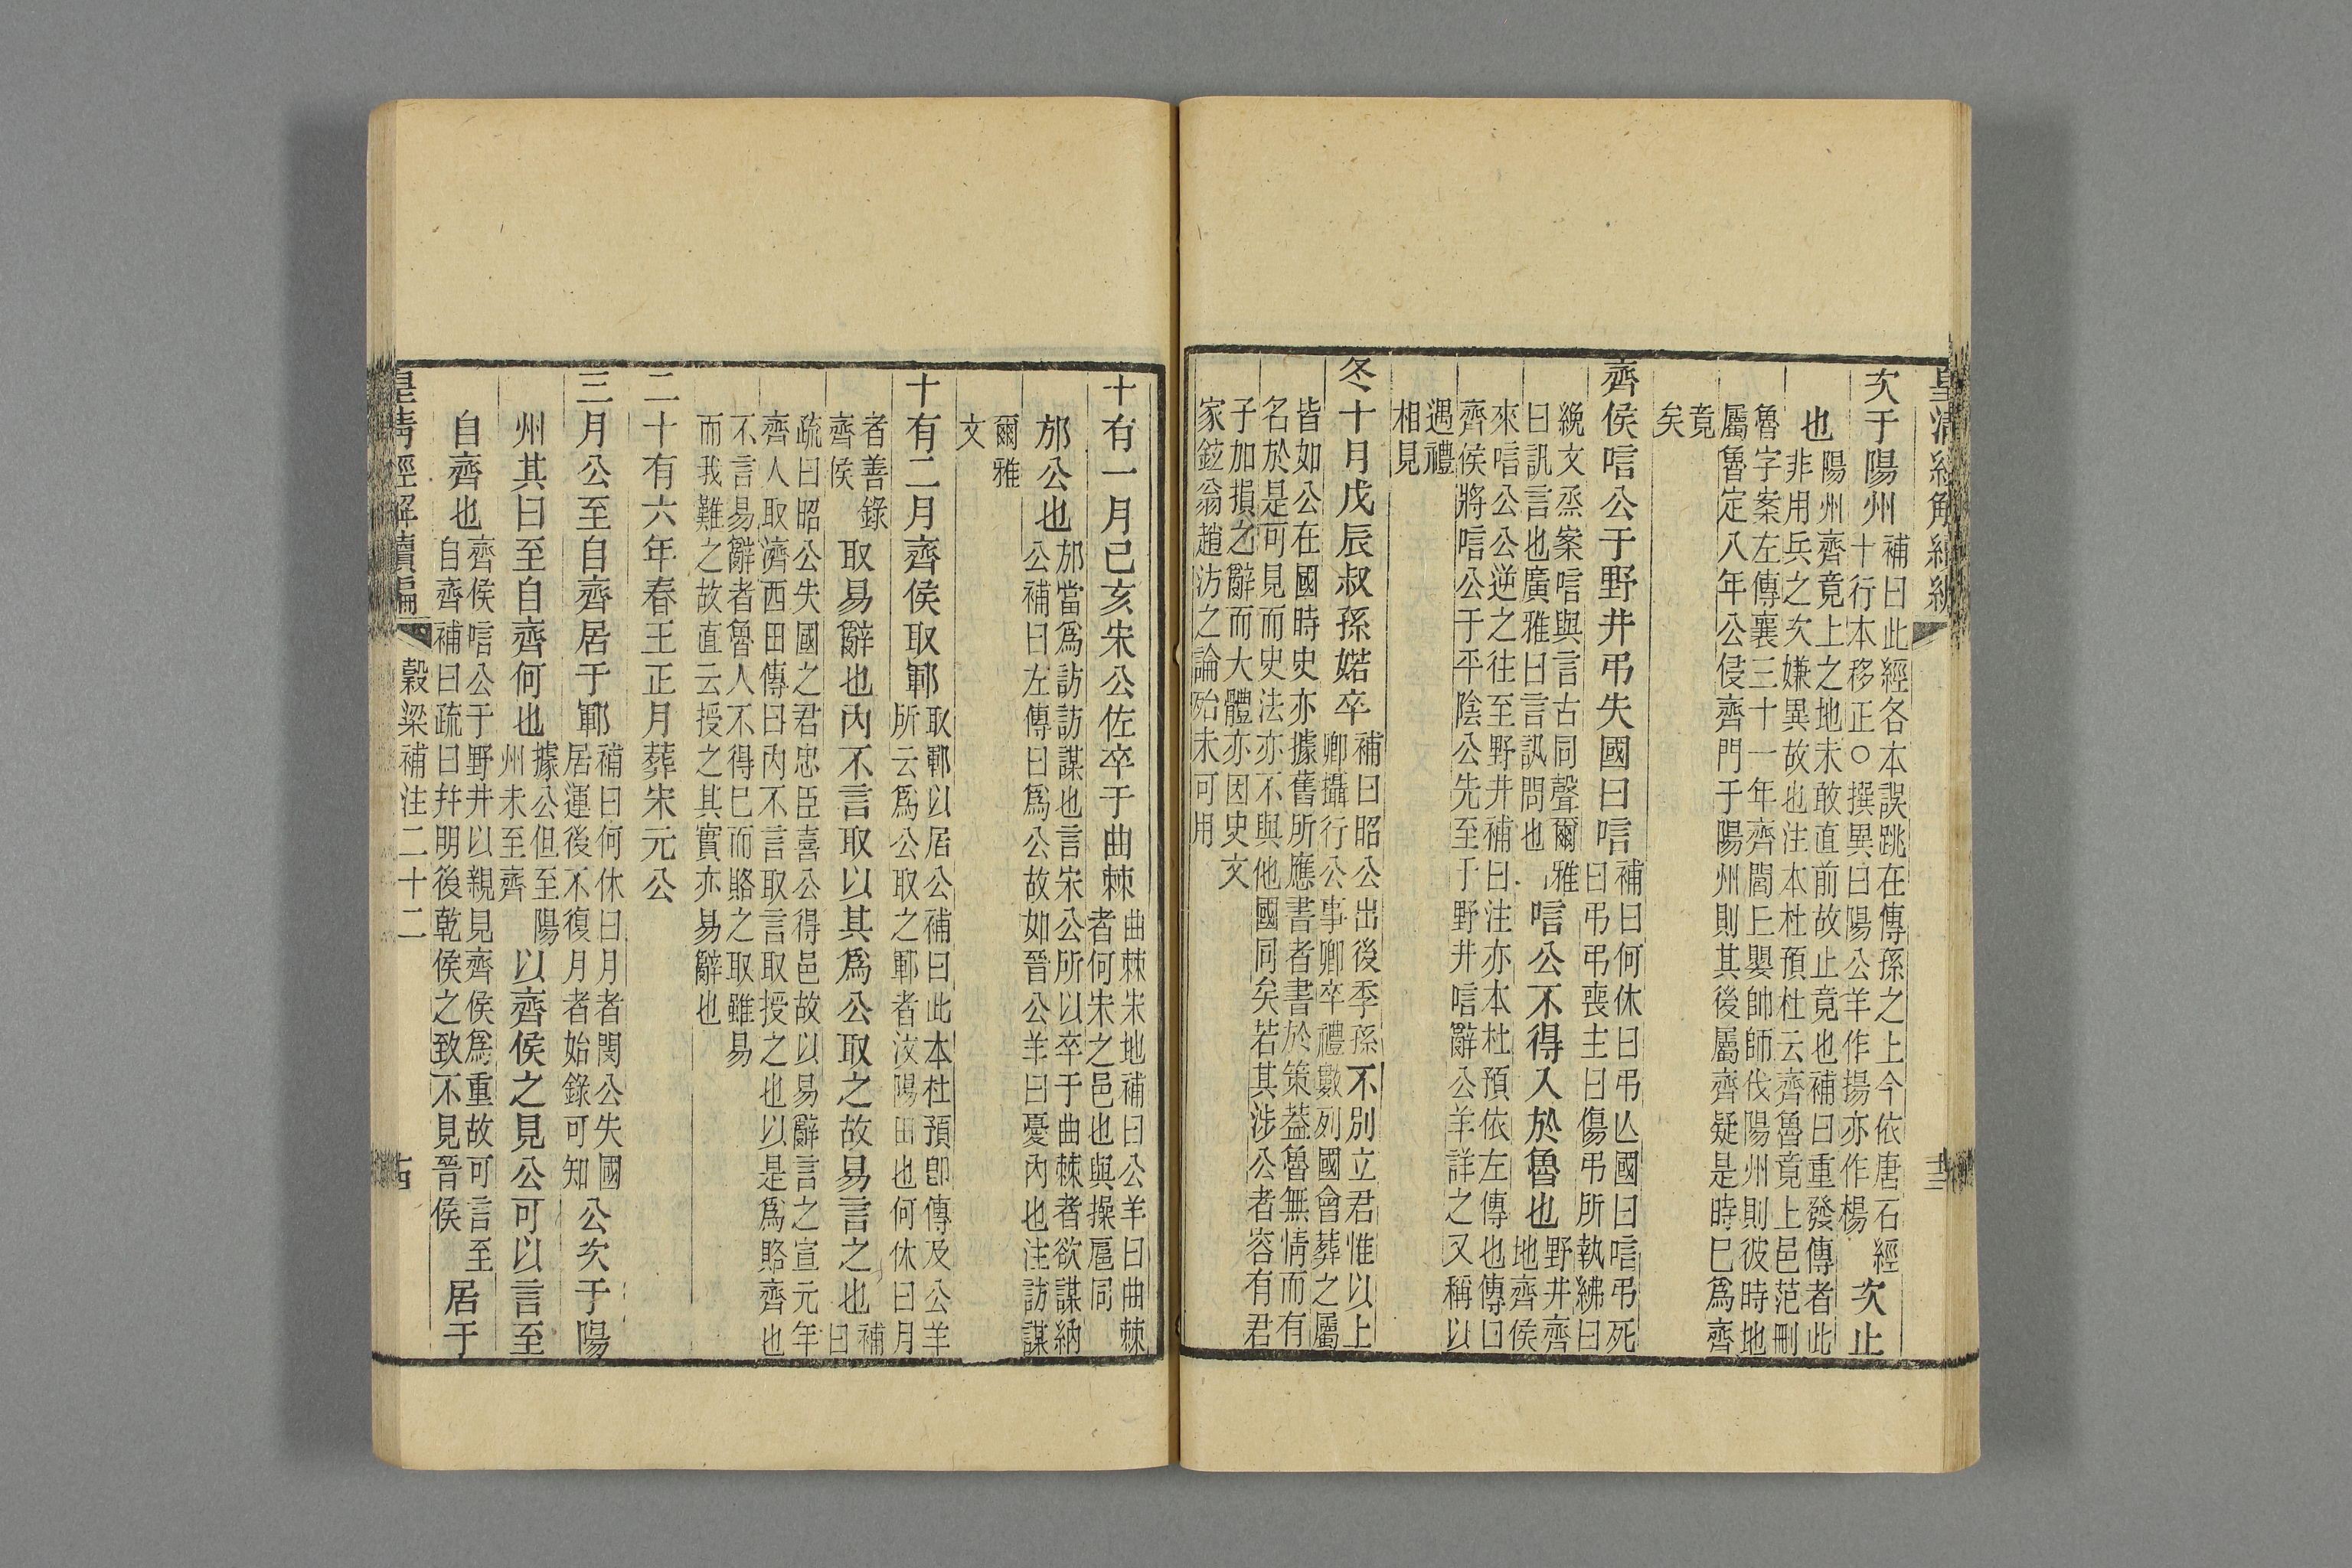 皇清經解續編
十三
次于陽州補曰此經各本誤跳在傳孫之上今依唐石經
十行本移正○撰異曰陽公羊作揚亦作楊次止
也陽州齊竟上之地未敢直前故止竟也補曰重發傳者此
非用兵之次嫌異故也注本杜預杜云齊魯竟上邑范刪
魯字案左傳襄三十一年齊閭丘嬰帥師伐陽州則彼時地
屬魯定八年公侵齊門于陽州則其後屬齊疑是時巳爲齊
竟
矣
齊侯唁公于野井弔失國曰唁補曰何休曰弔亾國曰唁弔死
曰弔弔喪主曰傷弔所執紼曰
絻文烝案唁與言古同聲爾雅
曰訊言也廣雅曰言訊問也唁公不得入於魯也野井齊
地齊侯
來唁公公逆之往至野井補曰注亦本杜預依左傳也傳曰
齊侯將唁公于平陰公先至于野井唁辭公羊詳之又稱以
遇禮
相見
冬十月戊辰叔孫婼卒補曰昭公出後季孫不別立君惟以上
卿攝行公事卿卒禮數列國會葬之屬
皆如公在國時史亦據舊所應書者書於策蓋魯無情而有
名於是可見而史法亦不與他國同矣若其涉公者容有君
子加損之辭而大體亦因史文
家鉉翁趙汸之論殆未可用
十有一月己亥宋公佐卒于曲棘曲棘宋地補曰公羊曰曲棘
者何宋之邑也與操扈同
邡公也邡當爲訪訪謀也言宋公所以卒于曲棘者欲謀納
公補曰左傳曰爲公故如晉公羊曰憂內也注訪謀
爾雅
文
十有二月齊侯取鄆取鄆以居公補曰此本杜預卽傳及公羊
所云爲公取之鄆者汶陽田也何休曰月
者善錄
齊侯取易辭也內不言取以其爲公取之故易言之也補
曰
疏曰昭公失國之君忠臣喜公得邑故以易辭言之宣元年
齊人取濟西田傳曰內不言取言取授之也以是爲賂齊也
不言易辭者魯人不得巳而賂之取雖易
而我難之故直云授之其實亦易辭也
二十有六年春王正月葬宋元公
三月公至自齊居于鄆補曰何休曰月者閔公失國
居運後不復月者始錄可知公次于陽
州其曰至自齊何也據公但至陽
州未至齊以齊侯之見公可以言至
自齊也齊侯唁公于野井以親見齊侯爲重故可言至
自齊補曰疏曰幷明後乾侯之致不見晉侯居于
皇清經解續編
穀梁補注二十二
十四